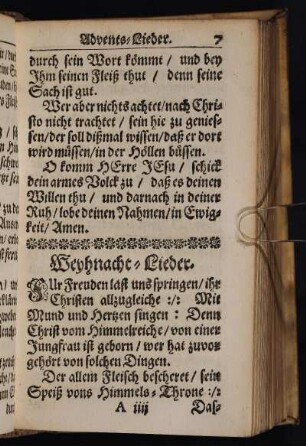 Advents-Lieder. 7
durch sein Wort kömmt / und bey
Ihm seinen Fleiß thut / denn seine
Sach ist gut.
Wer aber nichts achtet / nach Chri-
sto nicht trachtet / sein hie zu genies-
sen / der soll dißmal wissen / daß er dort
wird müssen / in der Höllen büssen.
O komm HErre JEsu / schick
dein armes Volck zu / daß es deinen
Willen thu / und darnach in deiner
Ruh / lobe deinen Nahmen / in Ewig-
keit / Amen.
Weyhnacht-Lieder.
Für Freuden last uns springen / ihr
Christen allzugleiche :/: Mit
Mund und Hertzen singen : Denn
Christ vom Himmelreiche / von einer
Jungfrau ist geborn / wer hat zuvor
gehört von solchen Dingen.
Der allem Fleisch bescheret / sein
Speiß vons Himmels-Throne :/:
A iiij Daß-